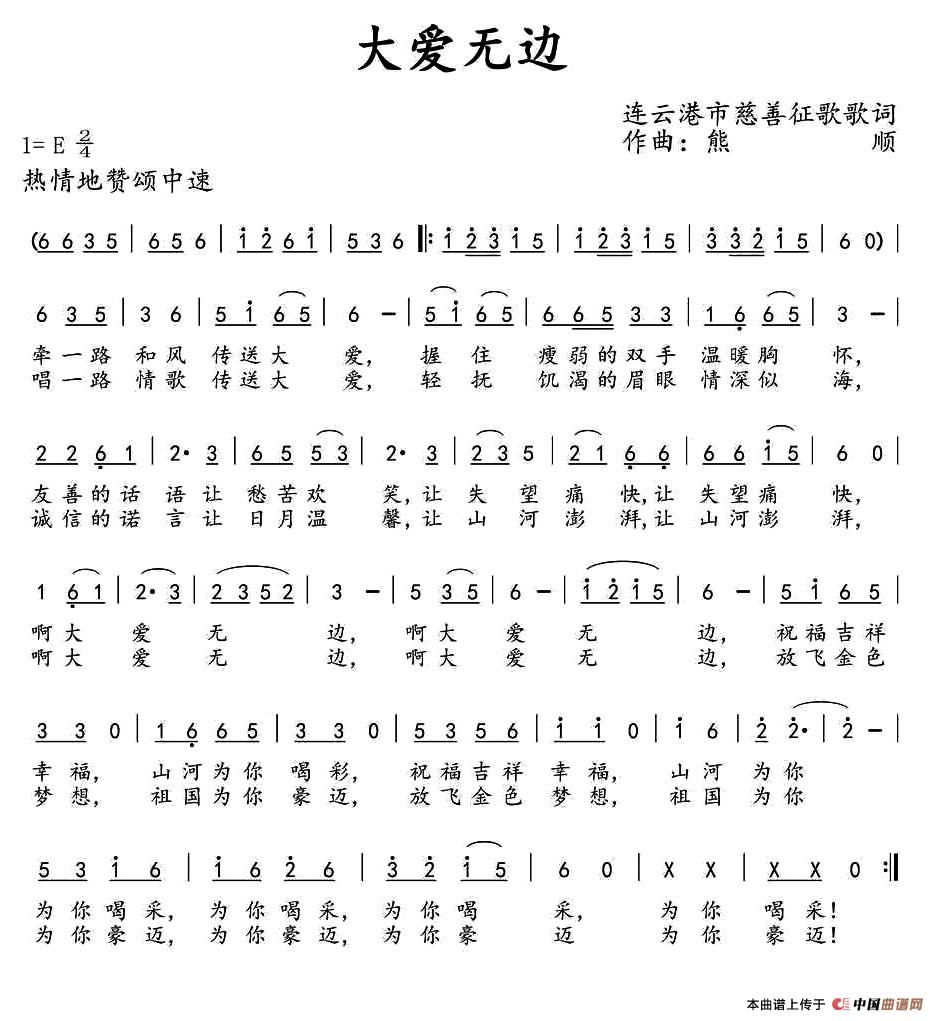 大爱无边
连云港市慈善征歌歌词
1=E 2/4
作曲：熊 顺
热情地赞颂中速
(6 6 3 5 | 6 5 6 | i 2 6 i | 5 3 6 |: i 2 3 i 5 | i 2 3 i 5 | 3 3 2 i 5 | 6 0) |
6 3 5 | 3 6 | 5 i 6 5 | 6 - | 5 i 6 5 | 6 6 5 3 3 | 1 6 6 5 | 3 - |
牵一路 和风 传送大 爱，握 住 瘦弱的双手 温暖胸 怀，
唱一路 情歌 传送大 爱，轻 抚 饥渴的眉眼 情深似 海，
2 2 6 1 | 2· 3 | 6 5 5 3 | 2· 3 | 2 3 5 | 2 1 6 6 | 6 6 i 5 | 6 0 |
友善的话 语让 愁苦欢 笑，让 失 望 痛 快，让 失望痛 快，
诚信的诺 言让 日月温 馨，让 山 河 澎 湃，让 山河澎 湃，
1 6 1 | 2· 3 | 2 3 5 2 | 3 - | 5 3 5 | 6 - | i 2 i 5 | 6 - | 5 i 6 5 |
啊大 爱 无 边，啊大 爱 无 边，祝福吉祥
啊大 爱 无 边，啊大 爱 无 边，放飞金色
3 3 0 | 1 6 6 5 | 3 3 0 | 5 3 5 6 | i i 0 | i 6 | 2 2· | 2 - |
幸福， 山河为你 喝彩， 祝福吉祥 幸福， 山河 为你
梦想， 祖国为你 豪迈， 放飞金色 梦想， 祖国 为你
5 3 i 6 | i 6 2 6 | 3 2 i 5 | 6 0 | X X | X X 0 :|
为你喝采，为你喝采，为你喝 采， 为你 喝采！
为你豪迈，为你豪迈，为你豪 迈 为你 豪迈！
本曲谱上传于 中国曲谱网